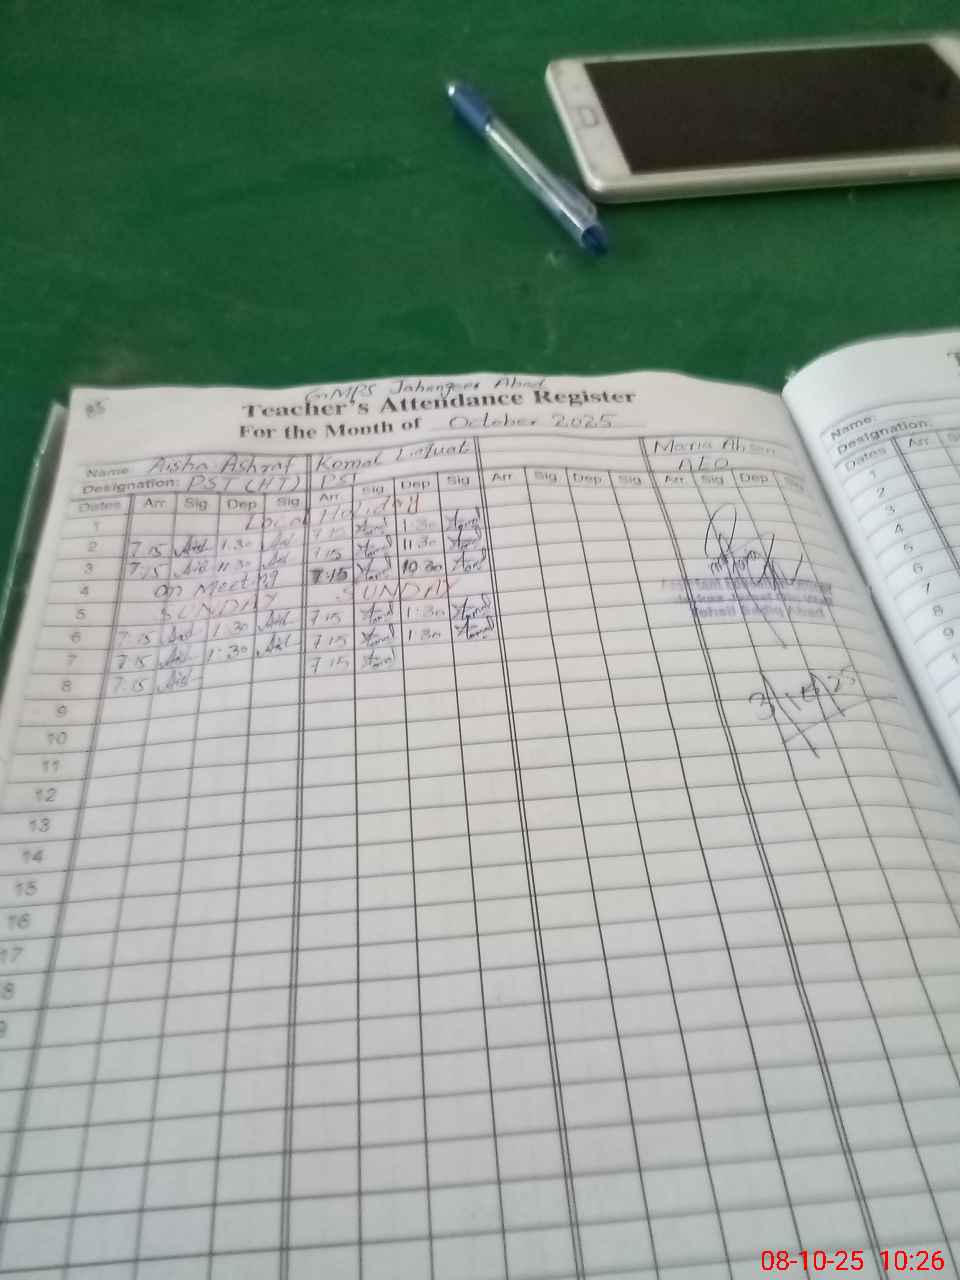 85
GMPS Jahangeer Abad
Teacher's Attendance Register
For the Month of October 2025
Name Aisha Ashraf Komal Liaquat Maria Ahsan
Designation: PST (HT) PST AEO
Dates Arr Sig Dep Sig Arr Sig Dep Sig Arr Sig Dep Sig Arr Sig Dep Sig
1 Local Holiday
2 7:15 1:30 7:15 1:30
3 7:15 11:30 7:15 11:30
4 on Meeting 7:15 10:30
5 SUNDAY SUNDAY
6 7:15 1:30 7:15 1:30
7 7:15 1:30 7:15 1:30
8 7:15 7:15
3/10/25
9
10
11
12
13
14
15
16
17
8
9
Name:
Designation:
Dates Arr
1
2
3
4
5
6
7
8
9
08-10-25 10:26